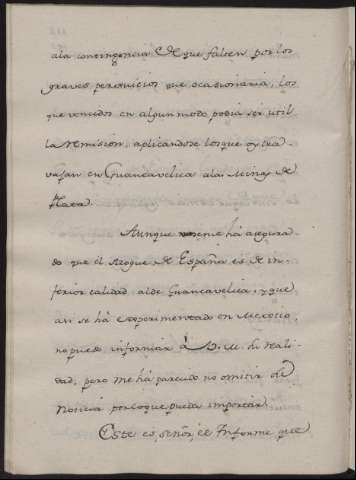 ala contingencia de que falten por los
graves perxuicios que ocasionaria; los
que venidos en algun modo podia ser util
la remision, aplicandose los que oy tra-
vajan en Guancavelica alas Minas de
Plata.
Aunque se me há asegura-
do que el Azogue de España es de in-
ferior calidad alde Guancavelica, y que
asi se há experimentado en Mexico,
no puedo informar á V. M. de reali-
dad, pero me há parecido no omitir la
Noticia por loque pueda importar.
Este es, señor, el Informe que